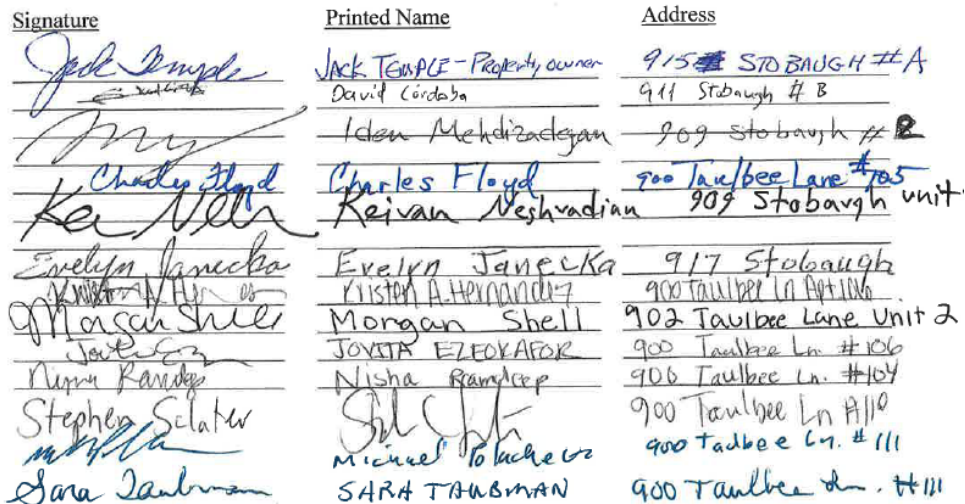 Signature Printed Name Address
Jack Temple JACK TEMPLE - Property owner 915 STOBAUGH # A
David Córdoba 911 Stobaugh # B
Iden Mehdizadegan 909 Stobaugh #
Charles Floyd Charles Floyd 900 Taulbee Lane #105
Keivan Neshvadian 909 Stobaugh unit
Evelyn Janecka Evelyn Janecka 917 Stobaugh
Kristen A. Hernandez 900 Taulbee Ln Apt
Morgan Shell Morgan Shell 902 Taulbee Lane Unit 2
JOVITA EZEOKAFOR 900 Taulbee Ln. #106
Nisha Ramdeep 900 Taulbee Ln. #104
Stephen Sclater 900 Taulbee Ln A110
Michael 900 Taulbee Ln. #111
Sara Taubman SARA TAUBMAN 900 Taulbee Ln. #111